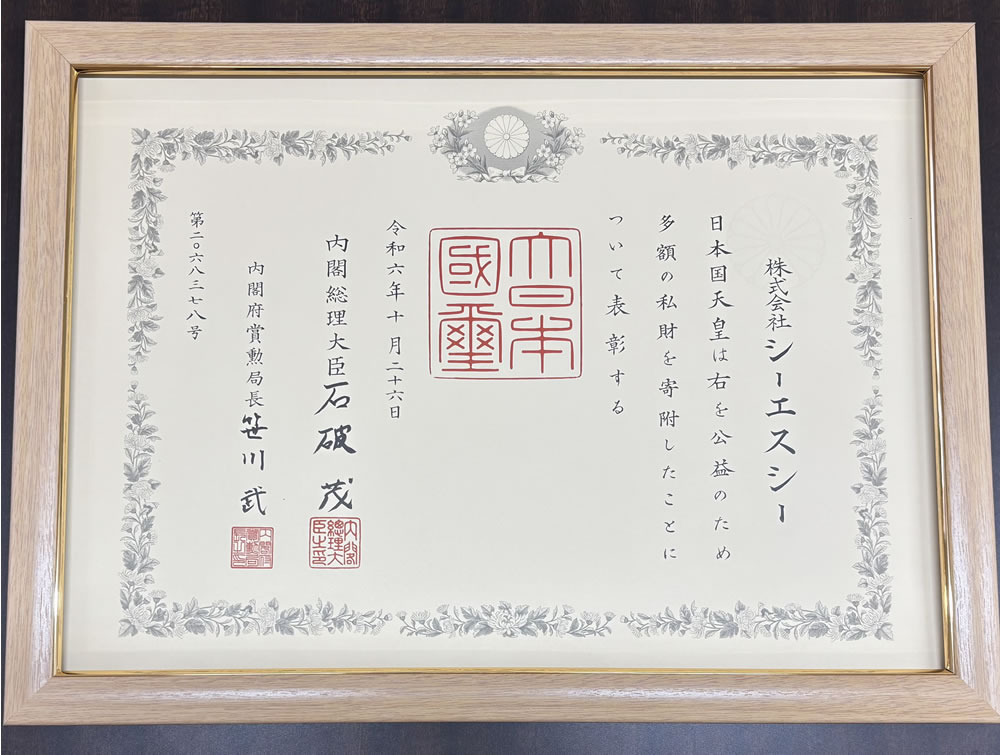 株式会社シーエスシー
日本国天皇は右を公益のため
多額の私財を寄附したことに
ついて表彰する
大日本國璽
令和六年十月二十六日
内閣総理大臣石破茂
内閣総理大臣之印
内閣府賞勲局長笹川武
第二〇六八三七八号